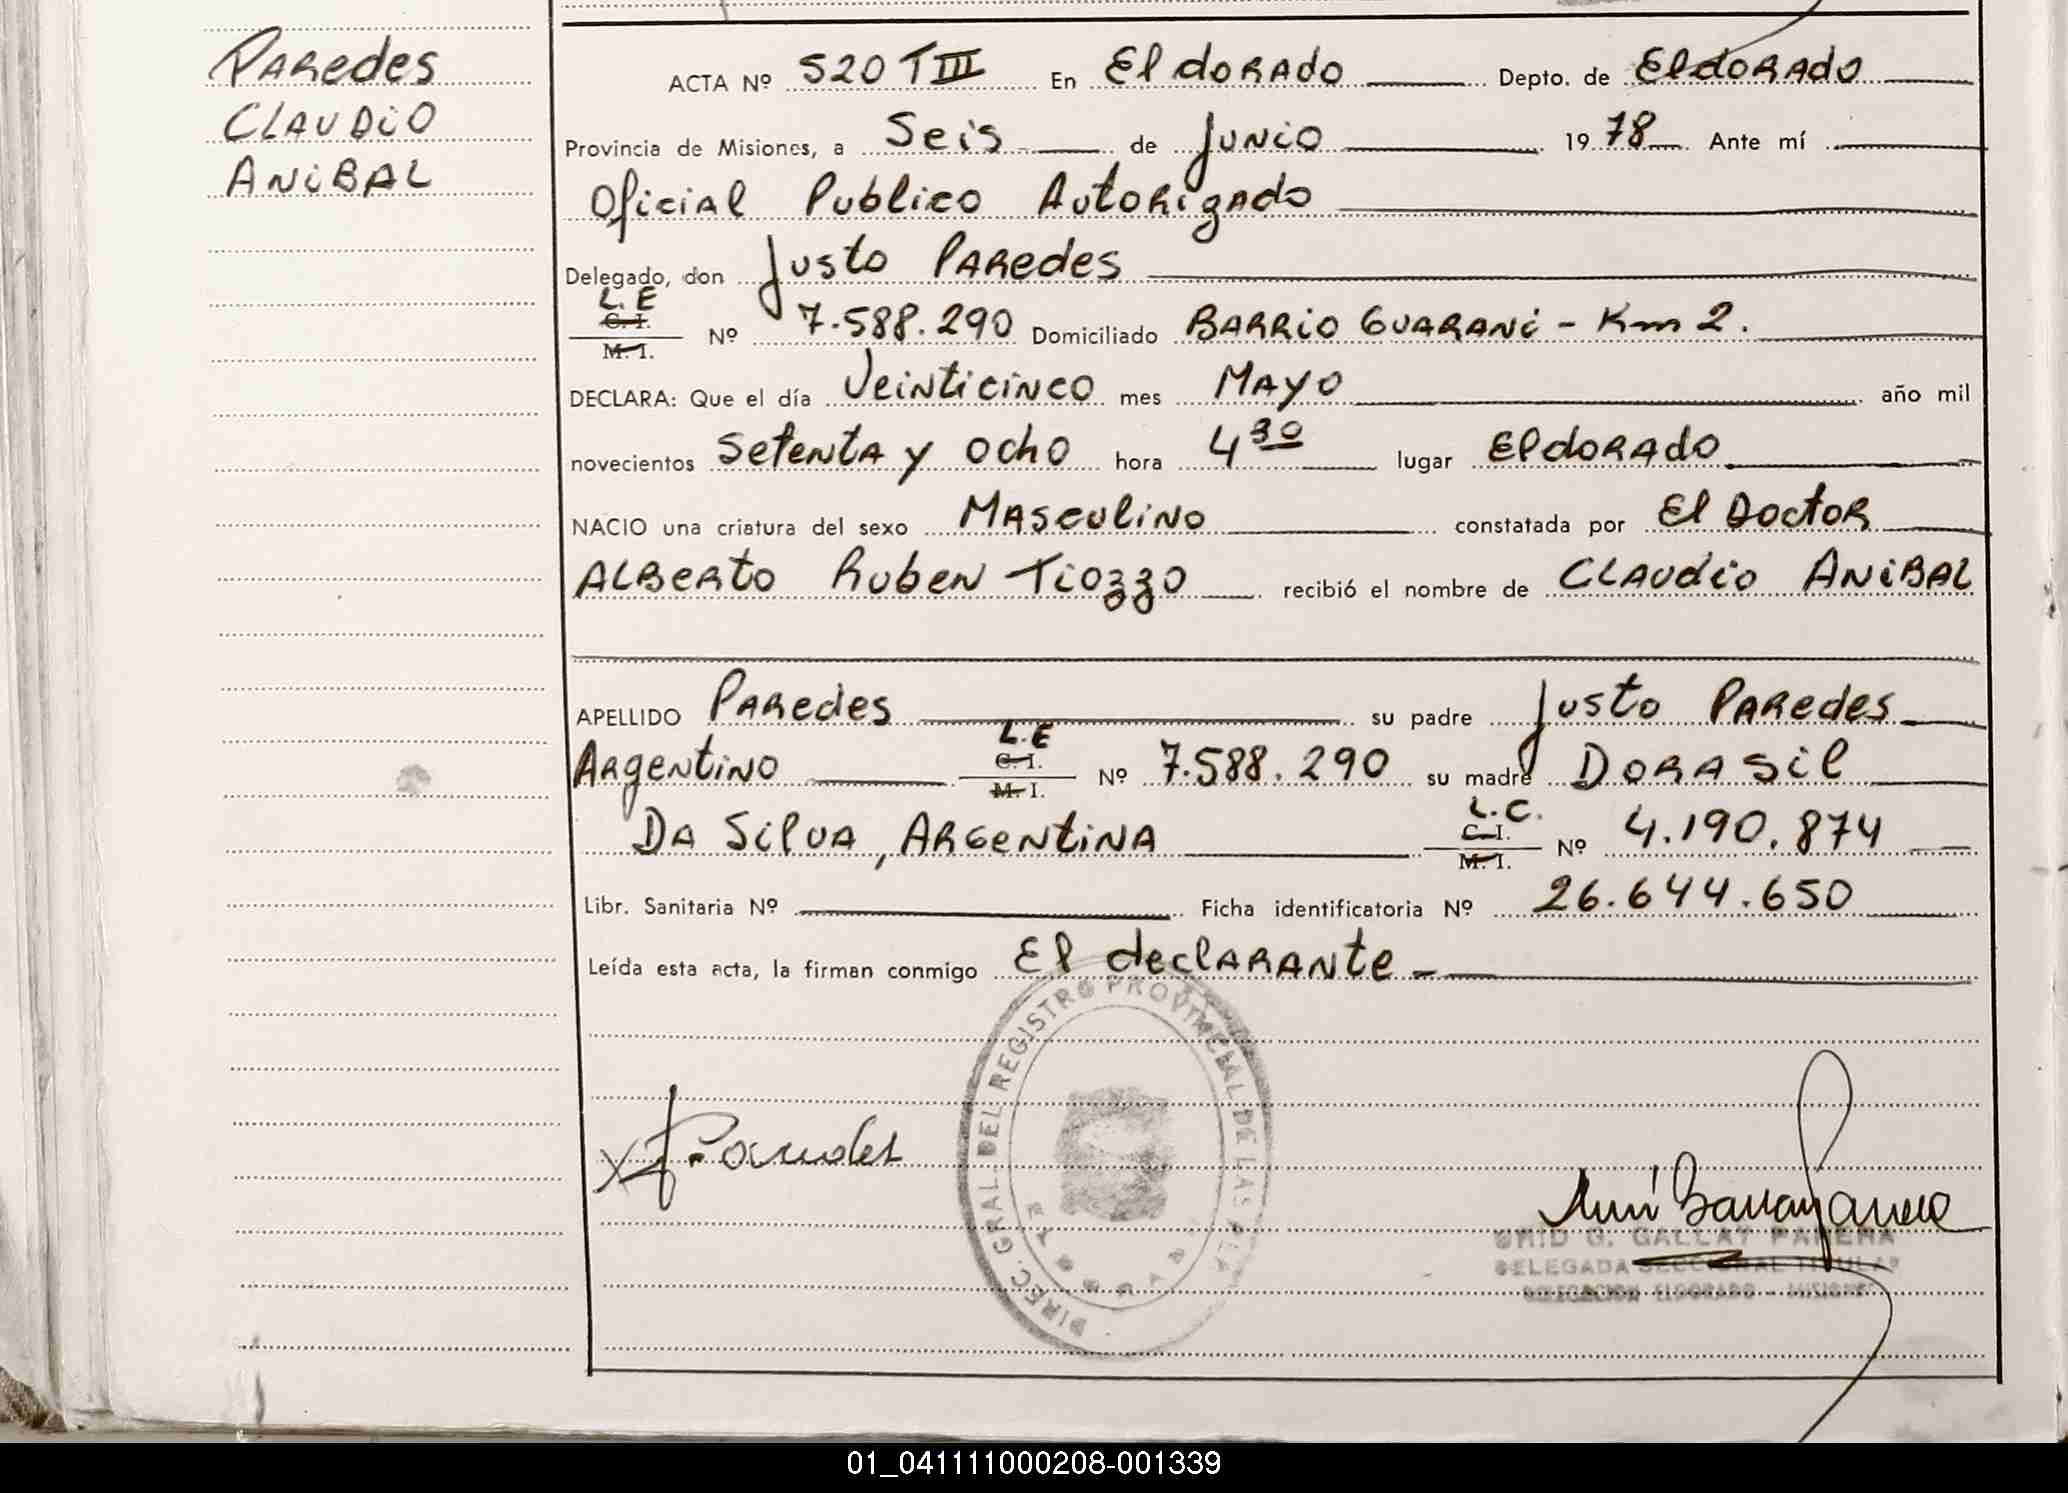 Paredes
Claudio
Anibal
ACTA Nº 520 T III En Eldorado Depto. de Eldorado
Provincia de Misiones, a Seis de Junio 1978 Ante mí
Oficial Publico Autorizado
Delegado, don Justo Paredes
L.E
C. I.
M. I. Nº 7.588.290 Domiciliado Barrio Guarani - Km 2.
DECLARA: Que el día Veinticinco mes Mayo año mil
novecientos Setenta y Ocho hora 4 30 lugar Eldorado
NACIO una criatura del sexo Masculino constatada por El Doctor
Alberto Ruben Tiozzo recibió el nombre de Claudio Anibal
APELLIDO Paredes su padre Justo Paredes
Argentino L.E C. I. M. I. Nº 7.588.290 su madre Dorasil
Da Silva, Argentina L.C. C. I. M. I. Nº 4.190.874
Libr. Sanitaria Nº Ficha identificatoria Nº 26.644.650
Leída esta acta, la firman conmigo El declarante
DIREC. GRAL. DEL REGISTRO PROVINCIAL DE LAS
G. GALLAY PARERA
DELEGADA SECCIONAL TITULAR
DELEGACION ELDORADO - MISIONES
01_041111000208-001339